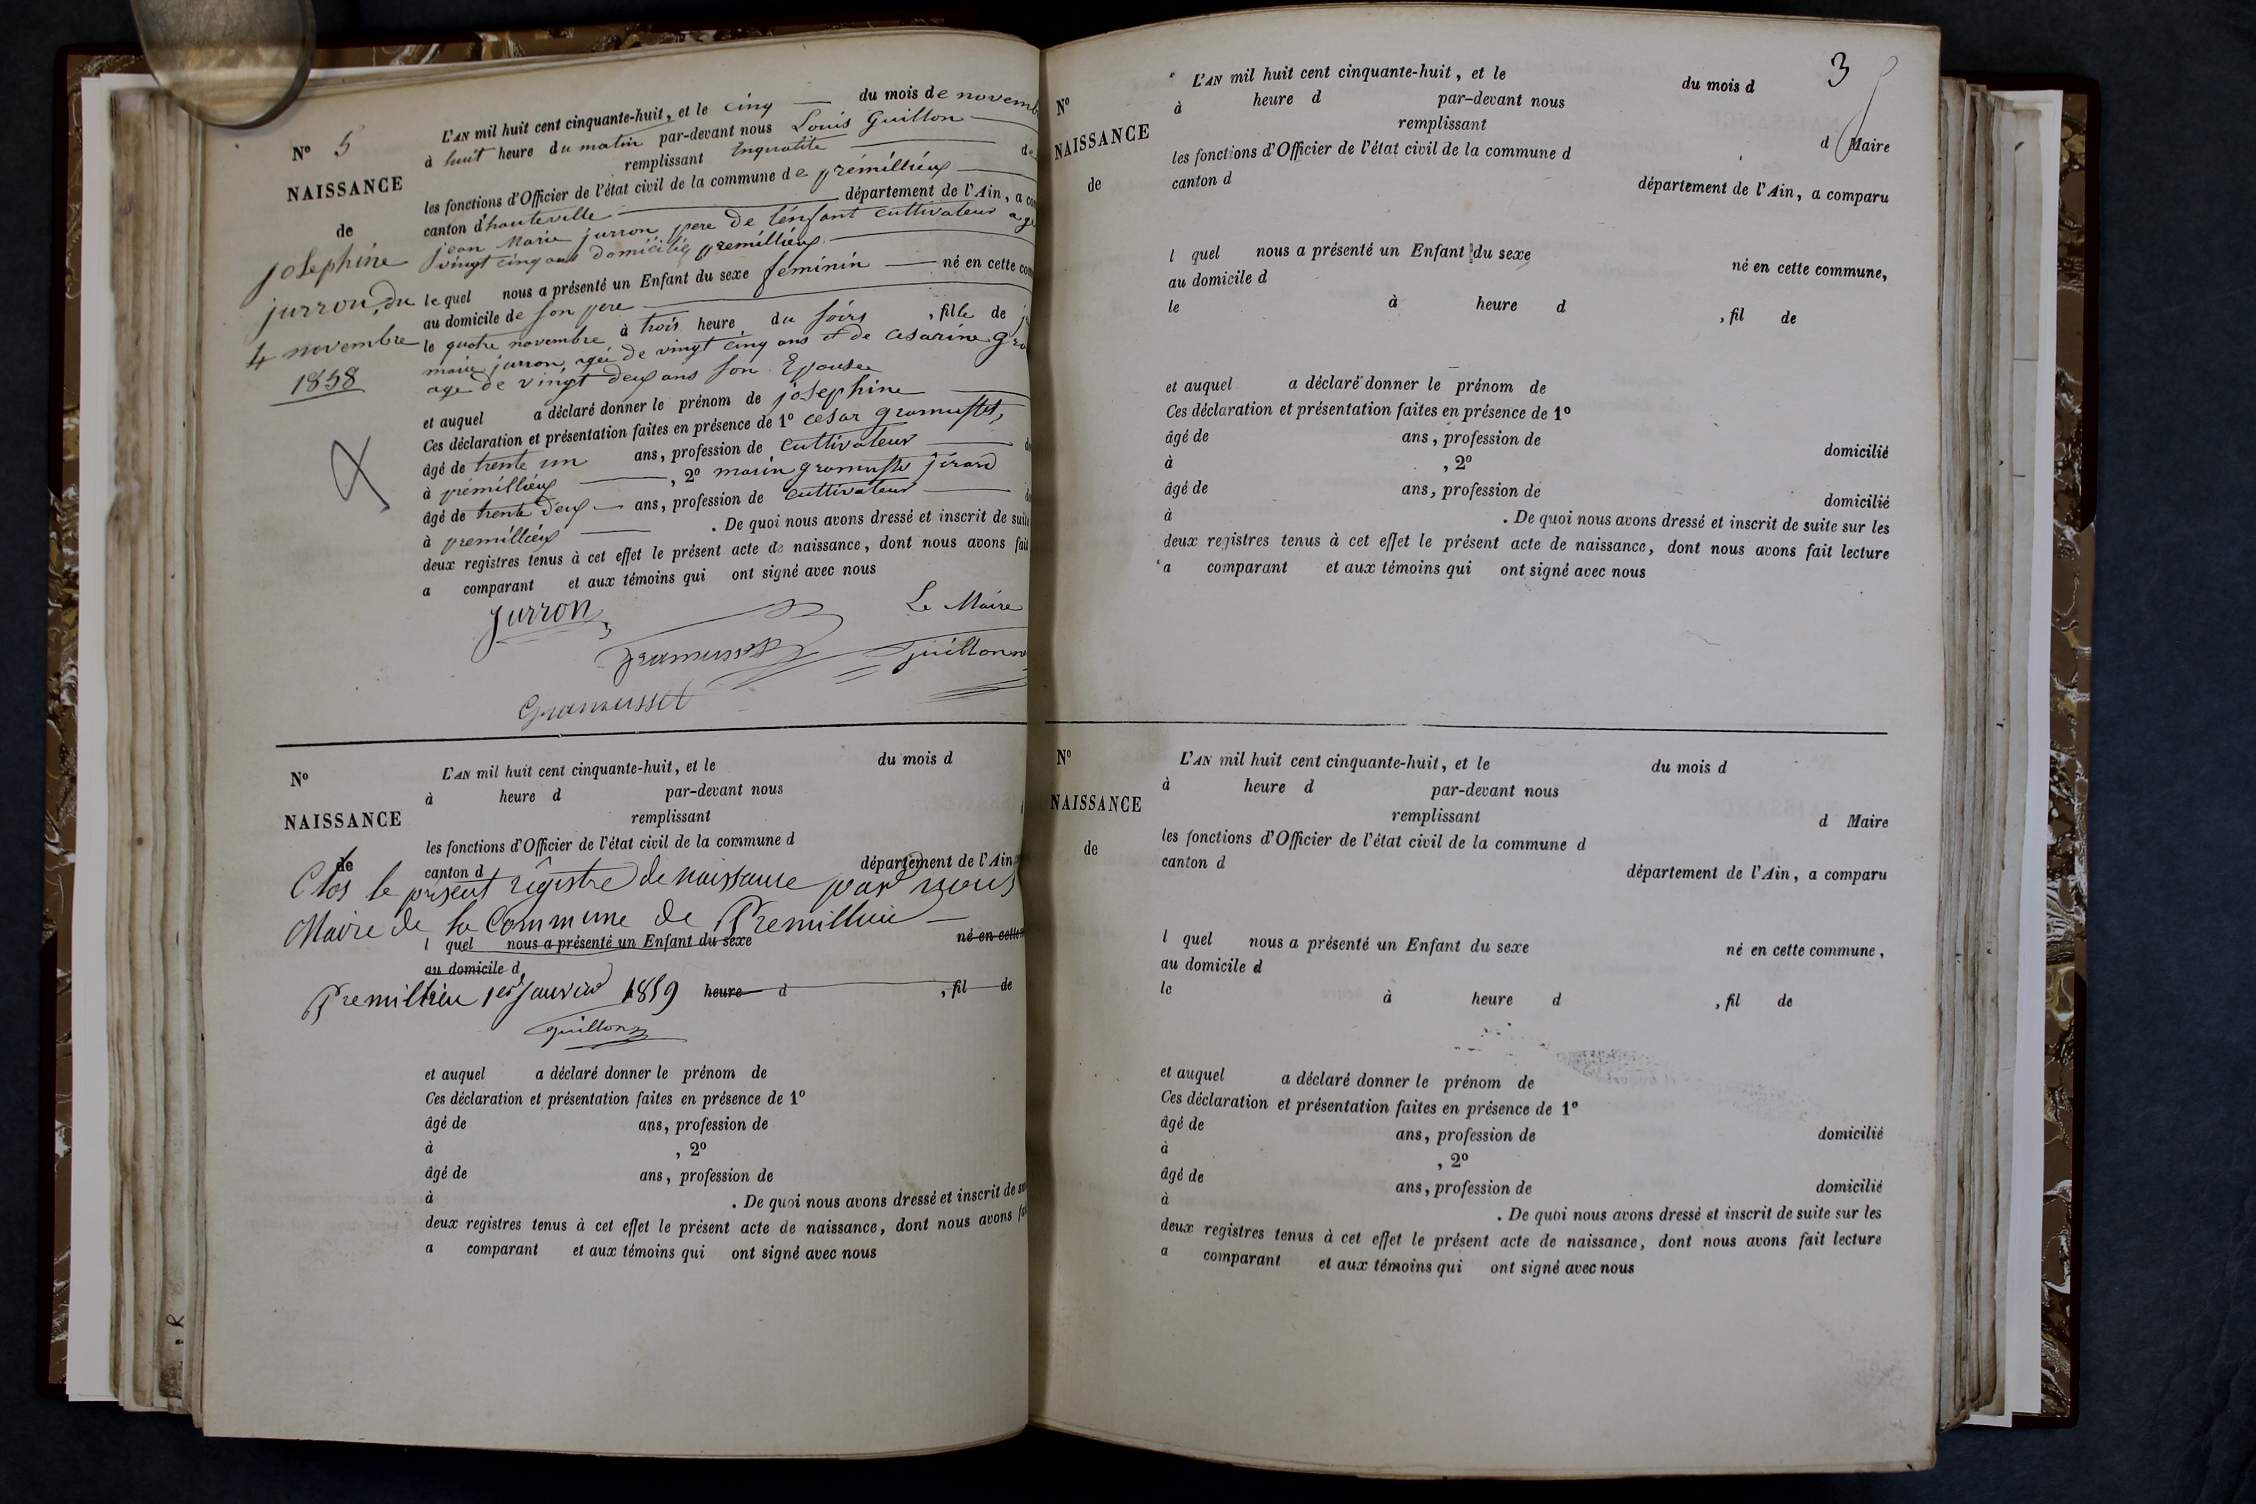 N° 5
NAISSANCE
de
josephine
jurron, du
4 novembre
1858
L'AN mil huit cent cinquante-huit, et le cinq du mois de novemb
à huit heure du matin par-devant nous Louis Guillon
remplissant
les fonctions d'Officier de l'état civil de la commune de prémillieux
canton d'hauteville département de l'Ain, a co
jean Marie jurron pere de l'énfant cultivateur agé
vingt cinq ans domicilié premillieux
le quel nous a présenté un Enfant du sexe feminin né en cette com
au domicile de son pere
le quatre novembre à trois heure du soirs, fille de j
marie jurron, agée de vingt cinq ans et de cesarine gra
age de vingt deux ans son Epouse
et auquel a déclaré donner le prénom de josephine
Ces déclaration et présentation faites en présence de 1° cesar gramusset,
âgé de trente un ans, profession de cultivateur do
à prémillieux, 2° marin gramusset
âgé de trente deux ans, profession de cultivateur do
à premillieux. De quoi nous avons dressé et inscrit de suite
deux registres tenus à cet effet le présent acte de naissance, dont nous avons fait
a comparant et aux témoins qui ont signé avec nous
Jurron
Le Maire
Gramusset
Guillon
Gramusset
N°
NAISSANCE
de
L'AN mil huit cent cinquante-huit, et le du mois d
à heure d par-devant nous
remplissant
les fonctions d'Officier de l'état civil de la commune d
canton d département de l'Ain
Clos le présent régistre de naissance par nous
Maire de la Commune de Premillieu
l quel nous a présenté un Enfant du sexe né en cette
au domicile d
Premillieu 1er Janvier 1859 heure d , fil de
Guillon
et auquel a déclaré donner le prénom de
Ces déclaration et présentation faites en présence de 1°
âgé de ans, profession de
à , 2°
âgé de ans, profession de
à . De quoi nous avons dressé et inscrit de su
deux registres tenus à cet effet le présent acte de naissance, dont nous avons fai
a comparant et aux témoins qui ont signé avec nous
3
N°
NAISSANCE
de
L'AN mil huit cent cinquante-huit, et le du mois d
à heure d par-devant nous
remplissant d Maire
les fonctions d'Officier de l'état civil de la commune d
canton d département de l'Ain, a comparu
l quel nous a présenté un Enfant du sexe né en cette commune,
au domicile d
le à heure d , fil de
et auquel a déclaré donner le prénom de
Ces déclaration et présentation faites en présence de 1°
âgé de ans, profession de domicilié
à , 2°
âgé de ans, profession de domicilié
à . De quoi nous avons dressé et inscrit de suite sur les
deux registres tenus à cet effet le présent acte de naissance, dont nous avons fait lecture
a comparant et aux témoins qui ont signé avec nous
N°
NAISSANCE
de
L'AN mil huit cent cinquante-huit, et le du mois d
à heure d par-devant nous
remplissant d Maire
les fonctions d'Officier de l'état civil de la commune d
canton d département de l'Ain, a comparu
l quel nous a présenté un Enfant du sexe né en cette commune,
au domicile d
le à heure d , fil de
et auquel a déclaré donner le prénom de
Ces déclaration et présentation faites en présence de 1°
âgé de ans, profession de domicilié
à , 2°
âgé de ans, profession de domicilié
à . De quoi nous avons dressé et inscrit de suite sur les
deux registres tenus à cet effet le présent acte de naissance, dont nous avons fait lecture
a comparant et aux témoins qui ont signé avec nous